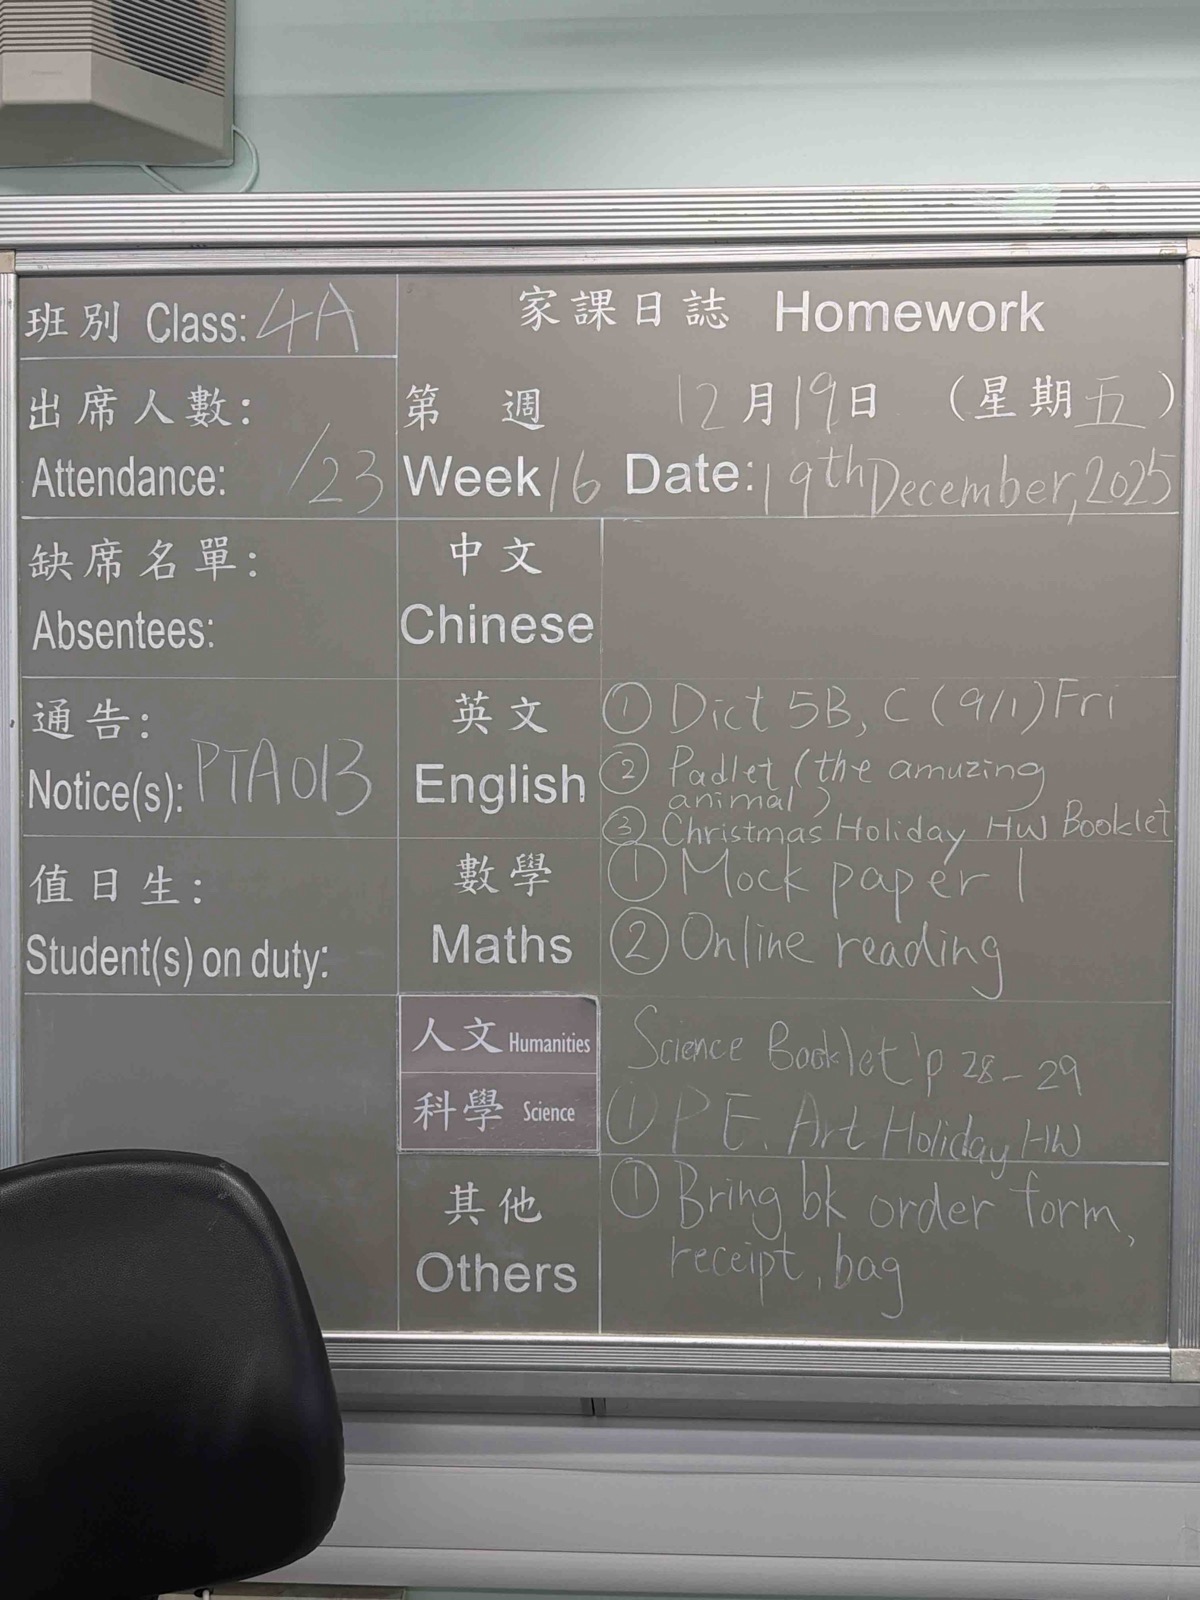 班別 Class: 4A
家課日誌 Homework
出席人數:
Attendance: /23
第 週 12月19日 (星期五)
Week 16 Date: 19th December, 2025
缺席名單:
Absentees:
中文
Chinese
通告:
Notice(s): PTA013
英文
English
① Dict 5B, C (9/1) Fri
② Padlet (the amuzing
animal)
③ Christmas Holiday HW Booklet
值日生:
Student(s) on duty:
數學
Maths
① Mock paper 1
② Online reading
人文 Humanities
科學 Science
Science Booklet p 28-29
① PE. Art Holiday HW
其他
Others
① Bring bk order form,
receipt, bag